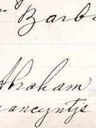 Barb
Abraham
ancyntje